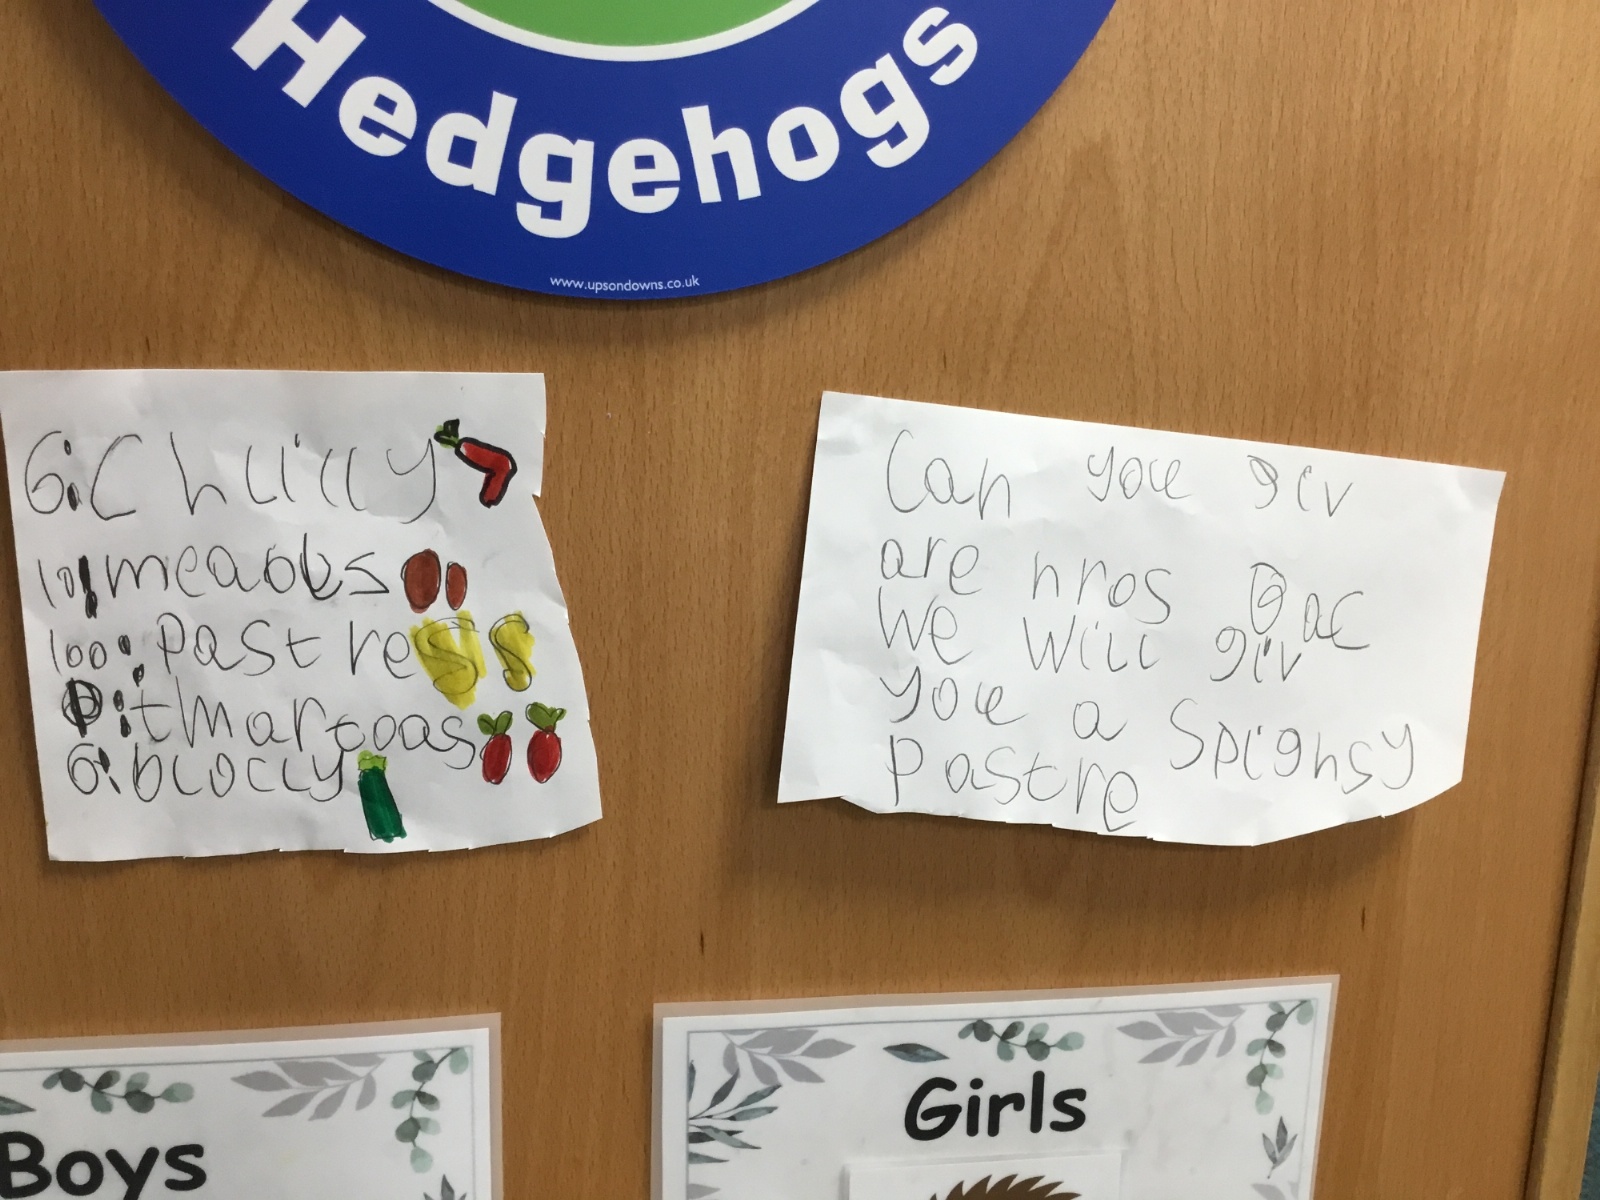 Hedgehogs
www.upsondowns.co.uk
6:Chlilly
10:meaobs
100:Pastre
:tmartoas
6:blocly
Can you giv
are hros Bac
we will giv
you a Spighsy
Pastre
Boys
Girls